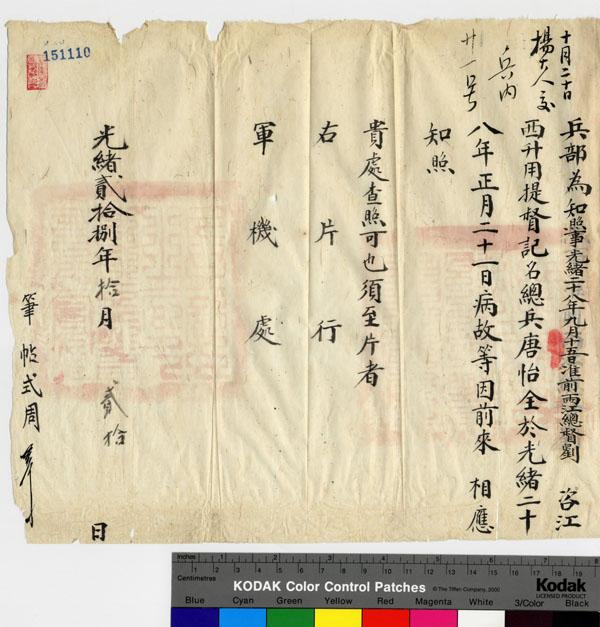 十月二十日
楊大人交
兵內
廿一号
兵部為知照事光緒二十八年九月十五准前兩江總督劉 咨江
西升用提督記名總兵唐怡全於光緒二十
八年正月二十一日病故等因前來 相應
知照
貴處查照可也須至片者
右片行
軍機處
光緒貳拾捌年拾月 貳拾 日
筆帖式周
151110
Inches
Centimetres
KODAK Color Control Patches
© The Tiffen Company, 2000
Kodak
LICENSED PRODUCT
Blue Cyan Green Yellow Red Magenta White 3/Color Black